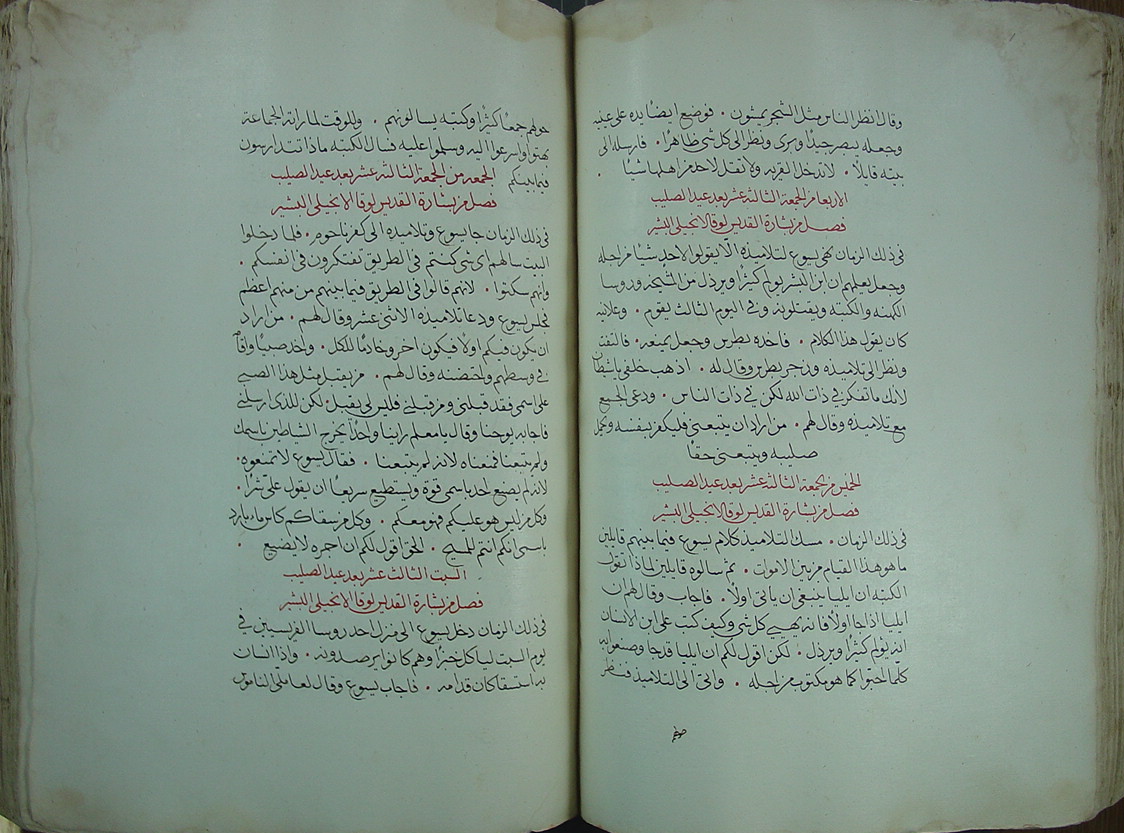 وقال انظر الناس مثل الشجر يمشون . فوضع ايضًا يده على عينيه
وجعله يبصر جيدًا وبرى ونظر الى كل شى ظاهرًا . فارسله الى
بيته قايلاً . لاتدخل القريه ولاتقل لاحد من اهلها شيًا .
الاربعا من الجمعة الثالثة عشر بعد عيد الصليب
فصل من بشارة القديس لوقا الانجيلى البشير
فى ذلك الزمان نهى يسوع لتلاميذه الّا تقولوا لاحدٍ شيًا من اجله
وجعل يعلمهم ان ابن البشر يولم كثيرًا ويرذل من الشيخه وروسا
الكهنه والكتبه ويقتلونه وفى اليوم الثالث يقوم . وعلانيه
كان يقول هذا الكلام . فاخذه بطرس وجعل يمنعه . فالتفت
ونظر الى تلاميذه وزجر بطرس وقال له . اذهب خلفى ياشيطان
لانك ما تفكر فى ذات الله لكن فى ذات الناس . ودعى الجميع
مع تلاميذه وقال لهم . من اراد ان يتبعنى فليكفر بنفسه ويحمل
صليبه ويتبعنى حقًا
الخميس من الجمعة الثالثة عشر بعد عيد الصليب
فصل من بشارة القديس لوقا الانجيلى البشير
فى ذلك الزمان . مسك التلاميذ كلام يسوع فيما بينهم قايلين
ما هو هذا القيام من بين الاموات . ثم سالوه قايلين لماذا تقول
الكتبه ان ايليا ينبغى ان ياتى اولاً . فاجاب وقال لهم ان
ايليا اذا جا اولاً فانه يهيى كل شى وكيف كتب على ابن الانسان
انه يولم كثيرًا ويرذل . لكن اقول لكم ان ايليا قد جا وصنعوا به
كلّما احبّوا كما هو مكتوب من اجله . واتى الى التلاميذ فنظر
حولهم جمعًا كثيرًا وكتبه يسالونهم . وللوقت لما راته الجماعة
بهتوا واسرعوا اليه وسلموا عليه فسال الكتبه ماذا تتدارسون
فيما بينكم الجمعه من الجمعة الثالثه عشر بعد عيد الصليب
فصل من بشارة القديس لوقا الانجيلى البشير
فى ذلك الزمان جا يسوع وتلاميذه الى كفرناحوم . فلما دخلوا
البيت سالهم اى شى كنتم فى الطريق تفتكرون فى انفسكم .
وانهم سكتوا . لانهم قالوا فى الطريق فيما بينهم من منهم اعظم
فجلس يسوع ودعا تلاميذه الاثنى عشر وقال لهم . من اراد
ان يكون فيكم اولاً فيكون اخر وخادمًا للكل . واخذ صبيًا واقامه
فى وسطهم واحتضنه وقال لهم . من يقبل مثل هذا الصبى
على اسمى فقد قبلنى ومن قبلنى فليس لى يقبل . لكن للذى ارسلنى
فاجابه يوحنا وقال يامعلم راينا واحدًا يخرج الشياطين باسمك
ولم يتبعنا فمنعناه لانه لم يتبعنا . فقال يسوع لاتمنعوه .
لانه لم يصنع احد باسمى قوة ويستطيع سريعًا ان يقول على شرًا .
وكل من ليس هو عليكم فهو معكم . وكل من سقاكم كاس ماء بارد
باسمى انكم انتم للمسيح . الحق اقول لكم ان اجره لايضيع .
السبت الثالث عشر بعد عيد الصليب
فصل من بشارة القديس لوقا الانجيلى البشير
فى ذلك الزمان دخل يسوع الى منزل احد روسا الفريسيين فى
يوم السبت لياكل خبزًا وهم كانوا يرصدونه . واذا انسان
به استسقا كان قدامه . فاجاب يسوع وقال لعلما الناموس